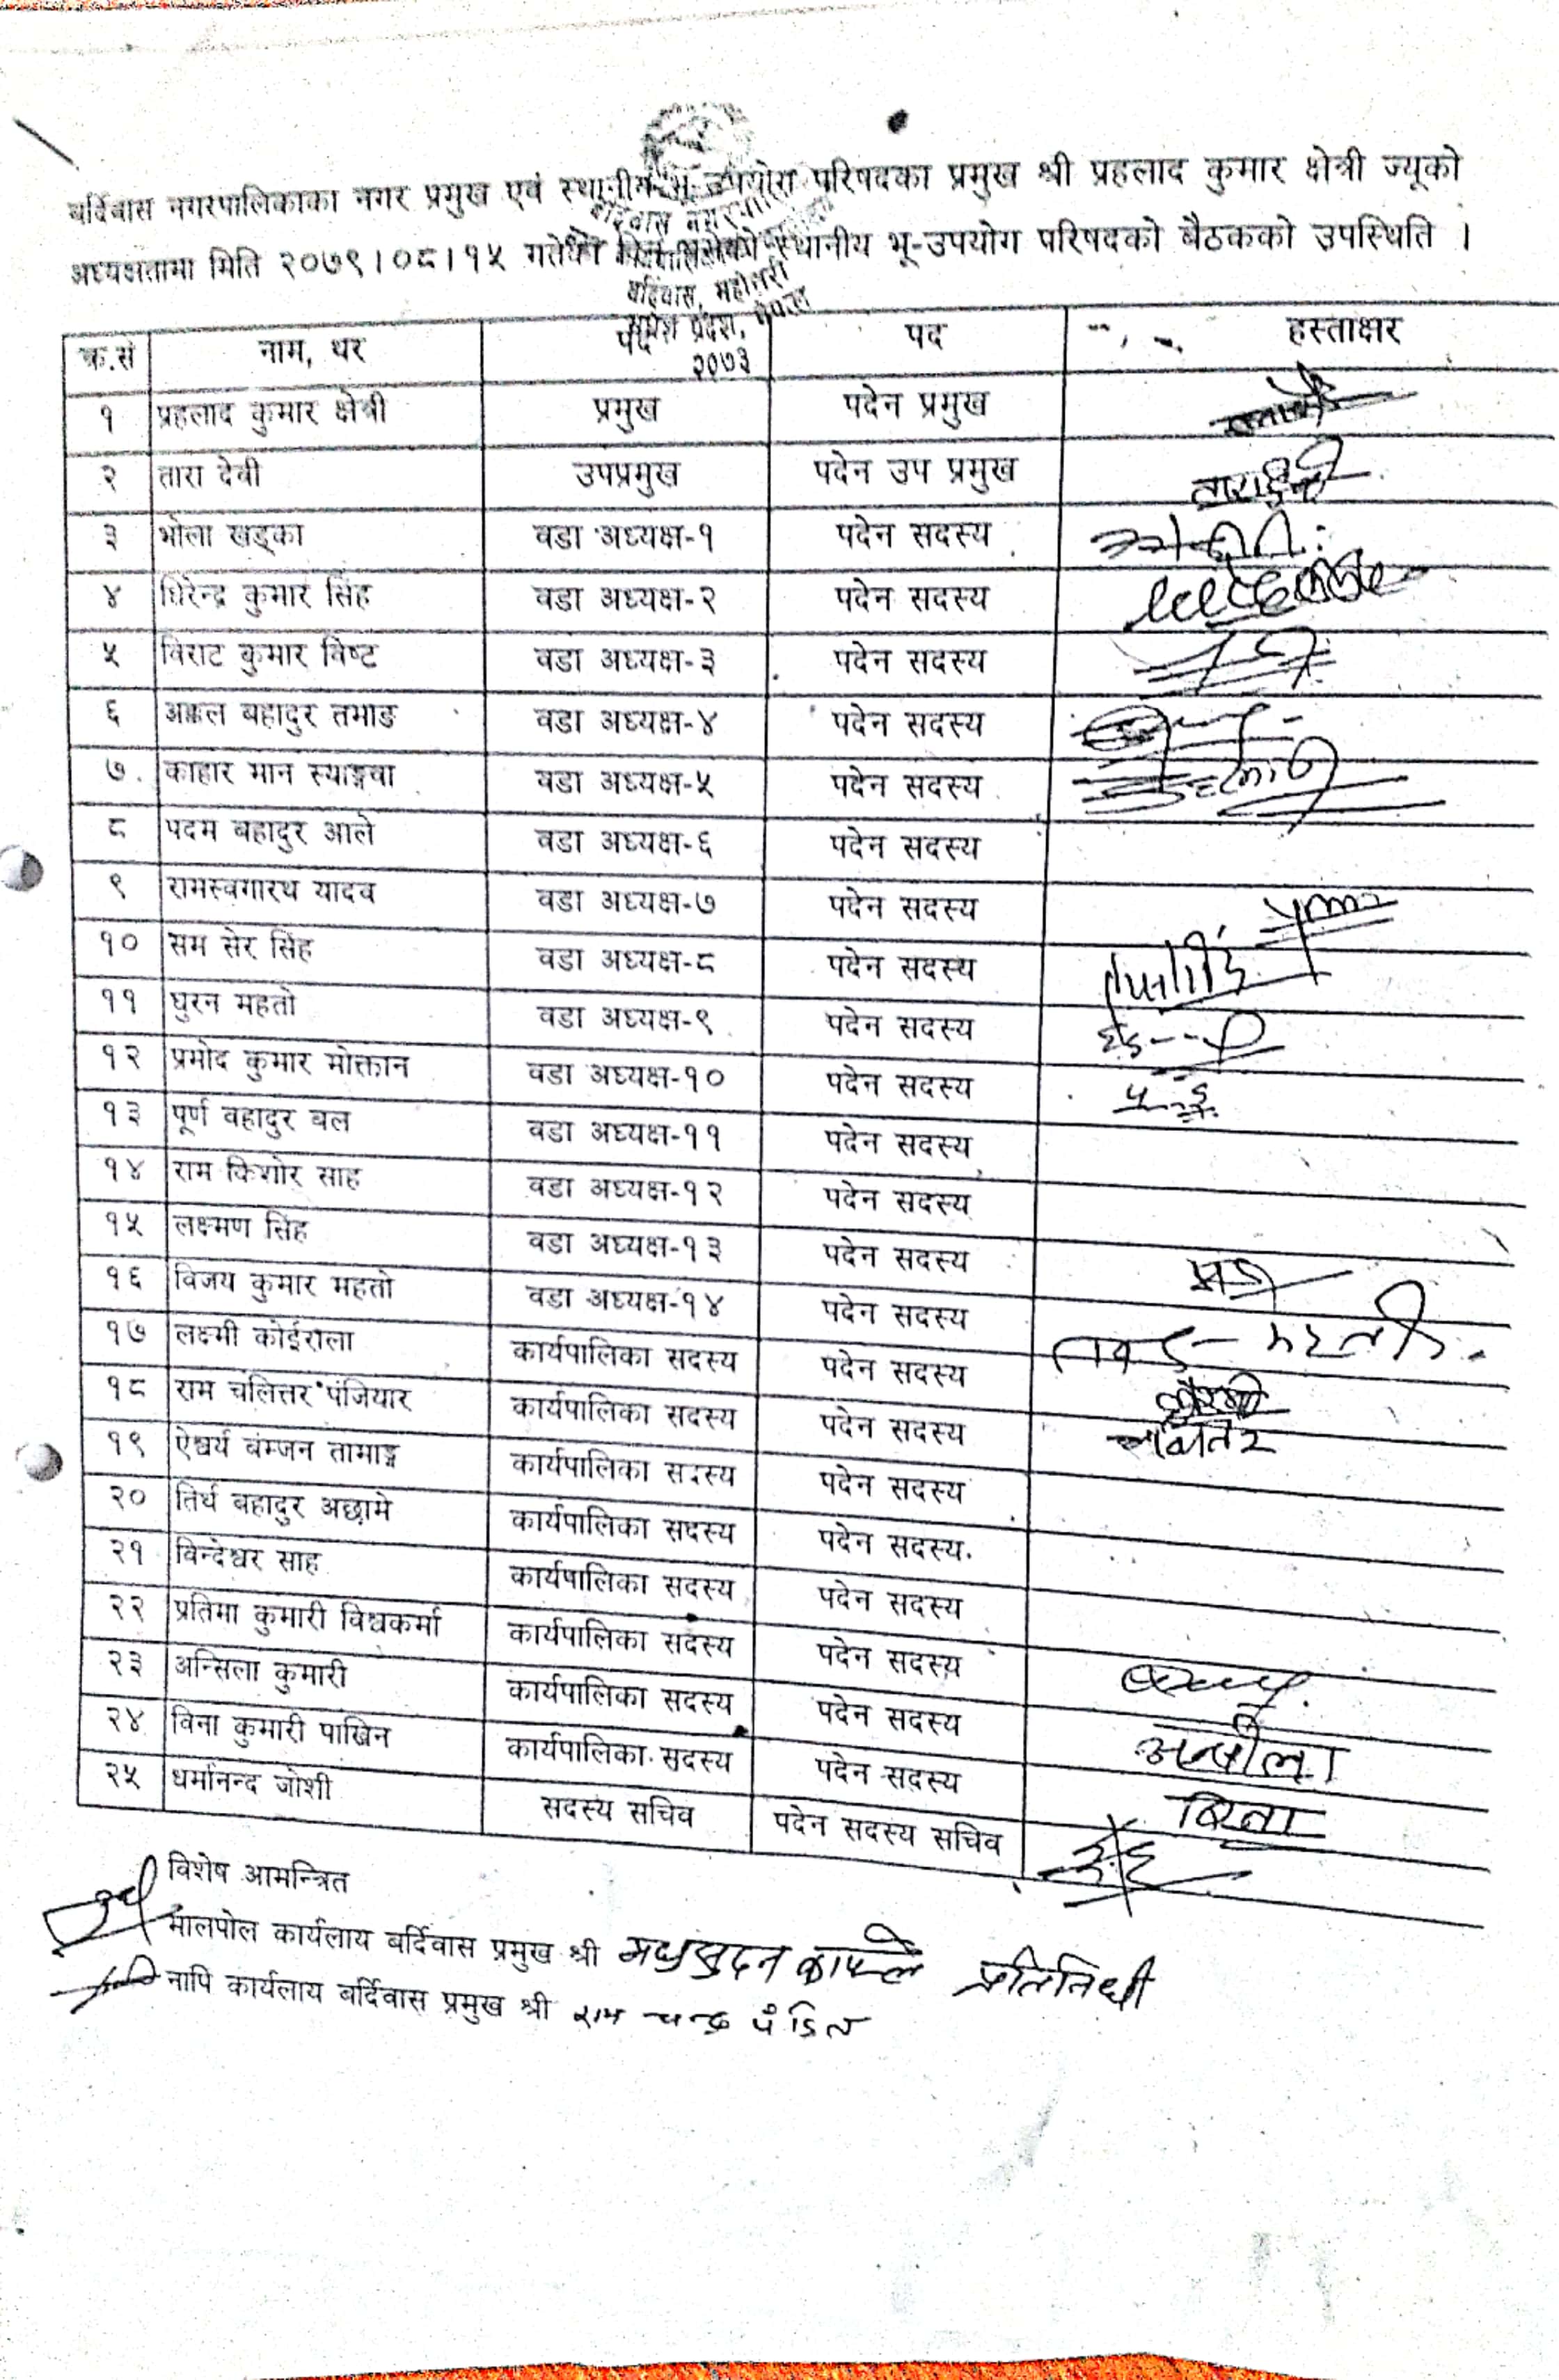 बर्दिबास नगरपालिकाका नगर प्रमुख एवं स्थानीय भू-उपयोग परिषदका प्रमुख श्री प्रहलाद कुमार क्षेत्री ज्यूको
अध्यक्षतामा मिति २०७९।०८।१५ गतेका स्थानीय भू-उपयोग परिषदको बैठकको उपस्थिति ।
बर्दिबास नगरपालिका
बर्दिबास, महोत्तरी
मधेश प्रदेश, नेपाल
२०७३
क्र.सं नाम, थर पद पद हस्ताक्षर
१ प्रहलाद कुमार क्षेत्री प्रमुख पदेन प्रमुख
२ तारा देवी उपप्रमुख पदेन उप प्रमुख तारादेवी
३ भोला खड्का वडा अध्यक्ष-१ पदेन सदस्य
४ धिरेन्द्र कुमार सिंह वडा अध्यक्ष-२ पदेन सदस्य
५ विराट कुमार विष्ट वडा अध्यक्ष-३ पदेन सदस्य
६ अक्कल बहादुर तमाङ वडा अध्यक्ष-४ पदेन सदस्य
७. काहार मान स्याङ्गवा वडा अध्यक्ष-५ पदेन सदस्य
८ पदम बहादुर आले वडा अध्यक्ष-६ पदेन सदस्य
९ रामस्वगारथ यादव वडा अध्यक्ष-७ पदेन सदस्य
१० सम सेर सिंह वडा अध्यक्ष-८ पदेन सदस्य
११ घुरन महतो वडा अध्यक्ष-९ पदेन सदस्य
१२ प्रमोद कुमार मोक्तान वडा अध्यक्ष-१० पदेन सदस्य
१३ पूर्ण वहादुर बल वडा अध्यक्ष-११ पदेन सदस्य
१४ राम किशोर साह वडा अध्यक्ष-१२ पदेन सदस्य
१५ लक्ष्मण सिंह वडा अध्यक्ष-१३ पदेन सदस्य
१६ विजय कुमार महतो वडा अध्यक्ष-१४ पदेन सदस्य
१७ लक्ष्मी कोईराला कार्यपालिका सदस्य पदेन सदस्य
१८ राम चलित्तर पंजियार कार्यपालिका सदस्य पदेन सदस्य
१९ ऐश्वर्य बम्जन तामाङ्ग कार्यपालिका सदस्य पदेन सदस्य
२० तिर्थ बहादुर अछामे कार्यपालिका सदस्य पदेन सदस्य.
२१ विन्देश्वर साह कार्यपालिका सदस्य पदेन सदस्य
२२ प्रतिमा कुमारी विश्वकर्मा कार्यपालिका सदस्य पदेन सदस्य
२३ अन्सिला कुमारी कार्यपालिका सदस्य पदेन सदस्य अन्सीला
२४ विना कुमारी पाखिन कार्यपालिका सदस्य पदेन सदस्य बिना
२५ धर्मानन्द जोशी सदस्य सचिव पदेन सदस्य सचिव
विशेष आमन्त्रित
मालपोल कार्यलाय बर्दिवास प्रमुख श्री मधुसुदन काफ्ले प्रतिनिधी
नापि कार्यलाय बर्दिवास प्रमुख श्री राम चन्द्र पंडित